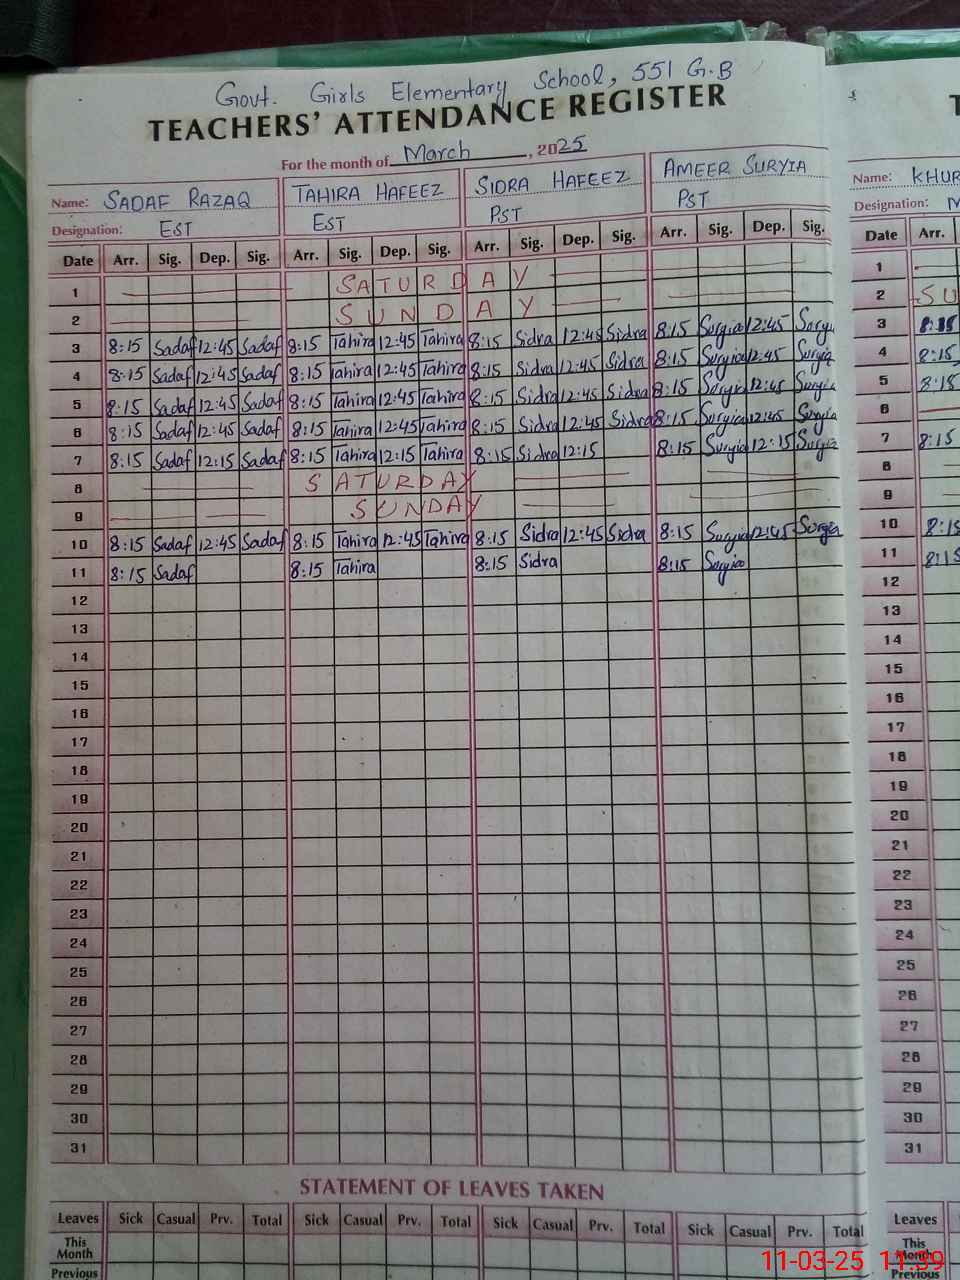 Govt. Girls Elementary School, 551 G.B
TEACHERS' ATTENDANCE REGISTER
For the month of March, 2025
Name: SADAF RAZAQ TAHIRA HAFEEZ SIDRA HAFEEZ AMEER SURYIA Name: KHUR
Designation: EST EST PST PST Designation: M
Date Arr. Sig. Dep. Sig. Arr. Sig. Dep. Sig. Arr. Sig. Dep. Sig. Arr. Sig. Dep. Sig. Date Arr.
1 SATURDAY 1
2 SUNDAY 2 SU
3 8:15 Sadaf 12:45 Sadaf 8:15 Tahira 12:45 Tahira 8:15 Sidra 12:45 Sidra 8:15 Suryia 12:45 Suryia 3 8:15
4 8:15 Sadaf 12:45 Sadaf 8:15 Tahira 12:45 Tahira 8:15 Sidra 12:45 Sidra 8:15 Suryia 12:45 Suryia 4 8:15
5 8:15 Sadaf 12:45 Sadaf 8:15 Tahira 12:45 Tahira 8:15 Sidra 12:45 Sidra 8:15 Suryia 12:45 Suryia 5 8:15
6 8:15 Sadaf 12:45 Sadaf 8:15 Tahira 12:45 Tahira 8:15 Sidra 12:45 Sidra 8:15 Suryia 12:45 Suryia 6
7 8:15 Sadaf 12:15 Sadaf 8:15 Tahira 12:15 Tahira 8:15 Sidra 12:15 8:15 Suryia 12:15 Suryia 7 8:15
8 SATURDAY 8
9 SUNDAY 9
10 8:15 Sadaf 12:45 Sadaf 8:15 Tahira 12:45 Tahira 8:15 Sidra 12:45 Sidra 8:15 Suryia 12:45 Suryia 10 8:15
11 8:15 Sadaf 8:15 Tahira 8:15 Sidra 8:15 Suryia 11 8:15
12 12
13 13
14 14
15 15
16 16
17 17
18 18
19 19
20 20
21 21
22 22
23 23
24 24
25 25
26 26
27 27
28 28
29 29
30 30
31 31
STATEMENT OF LEAVES TAKEN
Leaves Sick Casual Prv. Total Sick Casual Prv. Total Sick Casual Prv. Total Sick Casual Prv. Total Leaves
This Month This Month
Previous Previous
11-03-25 11:39